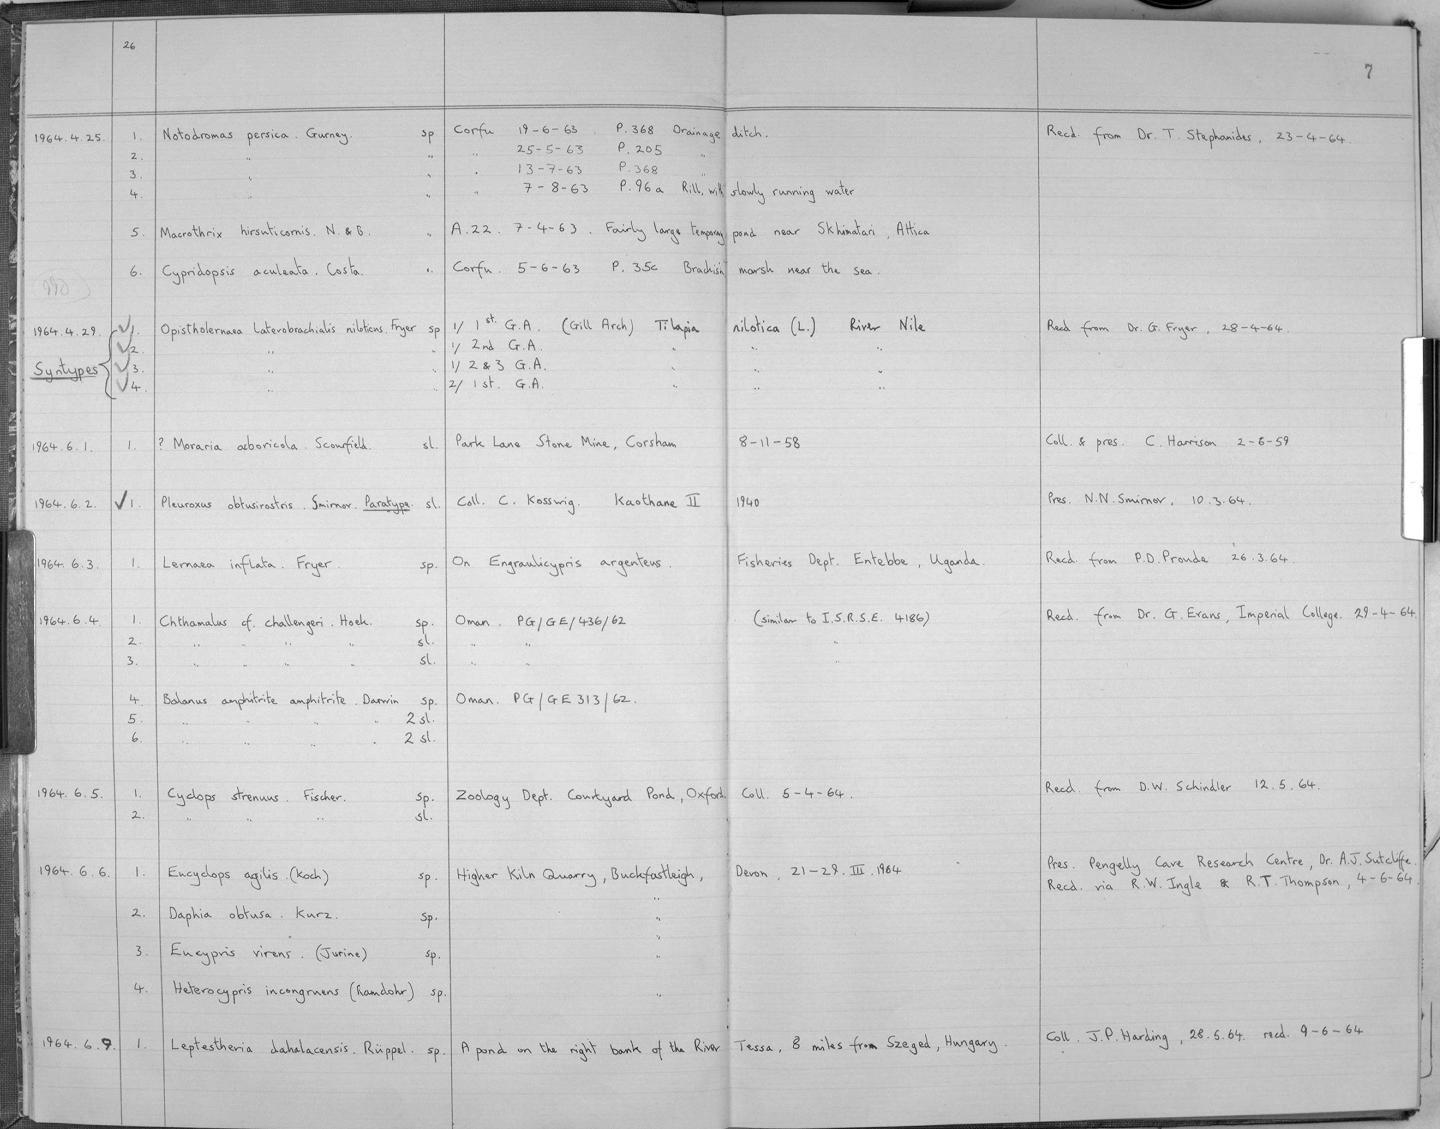 26
7
1964.4.25. 1. Notodromas persica. Gurney. sp Corfu 19-6-63. P.368 Drainage ditch. Recd. from Dr. T. Stephanides, 23-4-64.
2. " " " 25-5-63 P.205 "
3. " " " 13-7-63 P.368 "
4. " " " 7-8-63 P.96a Rill, with slowly running water
5. Macrothrix hirsuticornis. N. & B. " A.22. 7-4-63. Fairly large temporary pond near Skhimatari, Attica
6. Cypridopsis aculeata. Costa. " Corfu. 5-6-63 P.35c Brackish marsh near the sea.
1964.4.29. 1. Opistholernaea laterobrachialis niloticus. Fryer sp 1/ 1st G.A. (Gill Arch) Tilapia nilotica (L.) River Nile Recd from Dr. G. Fryer, 28-4-64.
2. " " 1/ 2nd G.A. " " "
Syntypes 3. " " 1/ 2 & 3 G.A. " " "
4. " " 2/ 1st. G.A. " " "
1964.6.1. 1. ? Moraria arboricola. Scourfield. sl. Park Lane Stone Mine, Corsham 8-11-58 Coll. & pres. C. Harrison 2-6-59
1964.6.2. 1. Pleuroxus obtusirostris. Smirnov. Paratype. sl. Coll. C. Kosswig. Kaothane II 1940 Pres. N.N. Smirnov, 10.3.64.
1964.6.3. 1. Lernaea inflata. Fryer. sp. On Engraulicypris argenteus. Fisheries Dept. Entebbe, Uganda. Recd. from P.D. Proude 26.3.64.
1964.6.4. 1. Chthamalus cf. challengeri. Hoek. sp. Oman. PG/GE/436/62 (similar to I.S.R.S.E. 4186) Recd. from Dr. G. Evans, Imperial College. 29-4-64.
2. " " " " sl. " " "
3. " " " " sl. " " "
4. Balanus amphitrite amphitrite. Darwin sp. Oman. PG/GE 313/62.
5. " " " " 2 sl.
6. " " " " 2 sl.
1964.6.5. 1. Cyclops strenuus. Fischer. sp. Zoology Dept. Courtyard Pond, Oxford. Coll. 5-4-64. Recd. from D.W. Schindler 12.5.64.
2. " " " sl.
Pres. Pengelly Cave Research Centre, Dr. A.J. Sutcliffe.
1964.6.6. 1. Eucyclops agilis. (Koch) sp. Higher Kiln Quarry, Buckfastleigh, Devon, 21-29.III.1964 Recd. via R.W. Ingle & R.T. Thompson, 4-6-64.
"
2. Daphia obtusa. Kurz. sp. "
"
3. Eucypris virens. (Jurine) sp. "
4. Heterocypris incongruens (Ramdohr) sp. "
1964.6.9. 1. Leptestheria dahalacensis. Rüppel. sp. A pond on the right bank of the River Tessa, 8 miles from Szeged, Hungary. Coll. J.P. Harding, 28.5.64. recd. 9-6-64